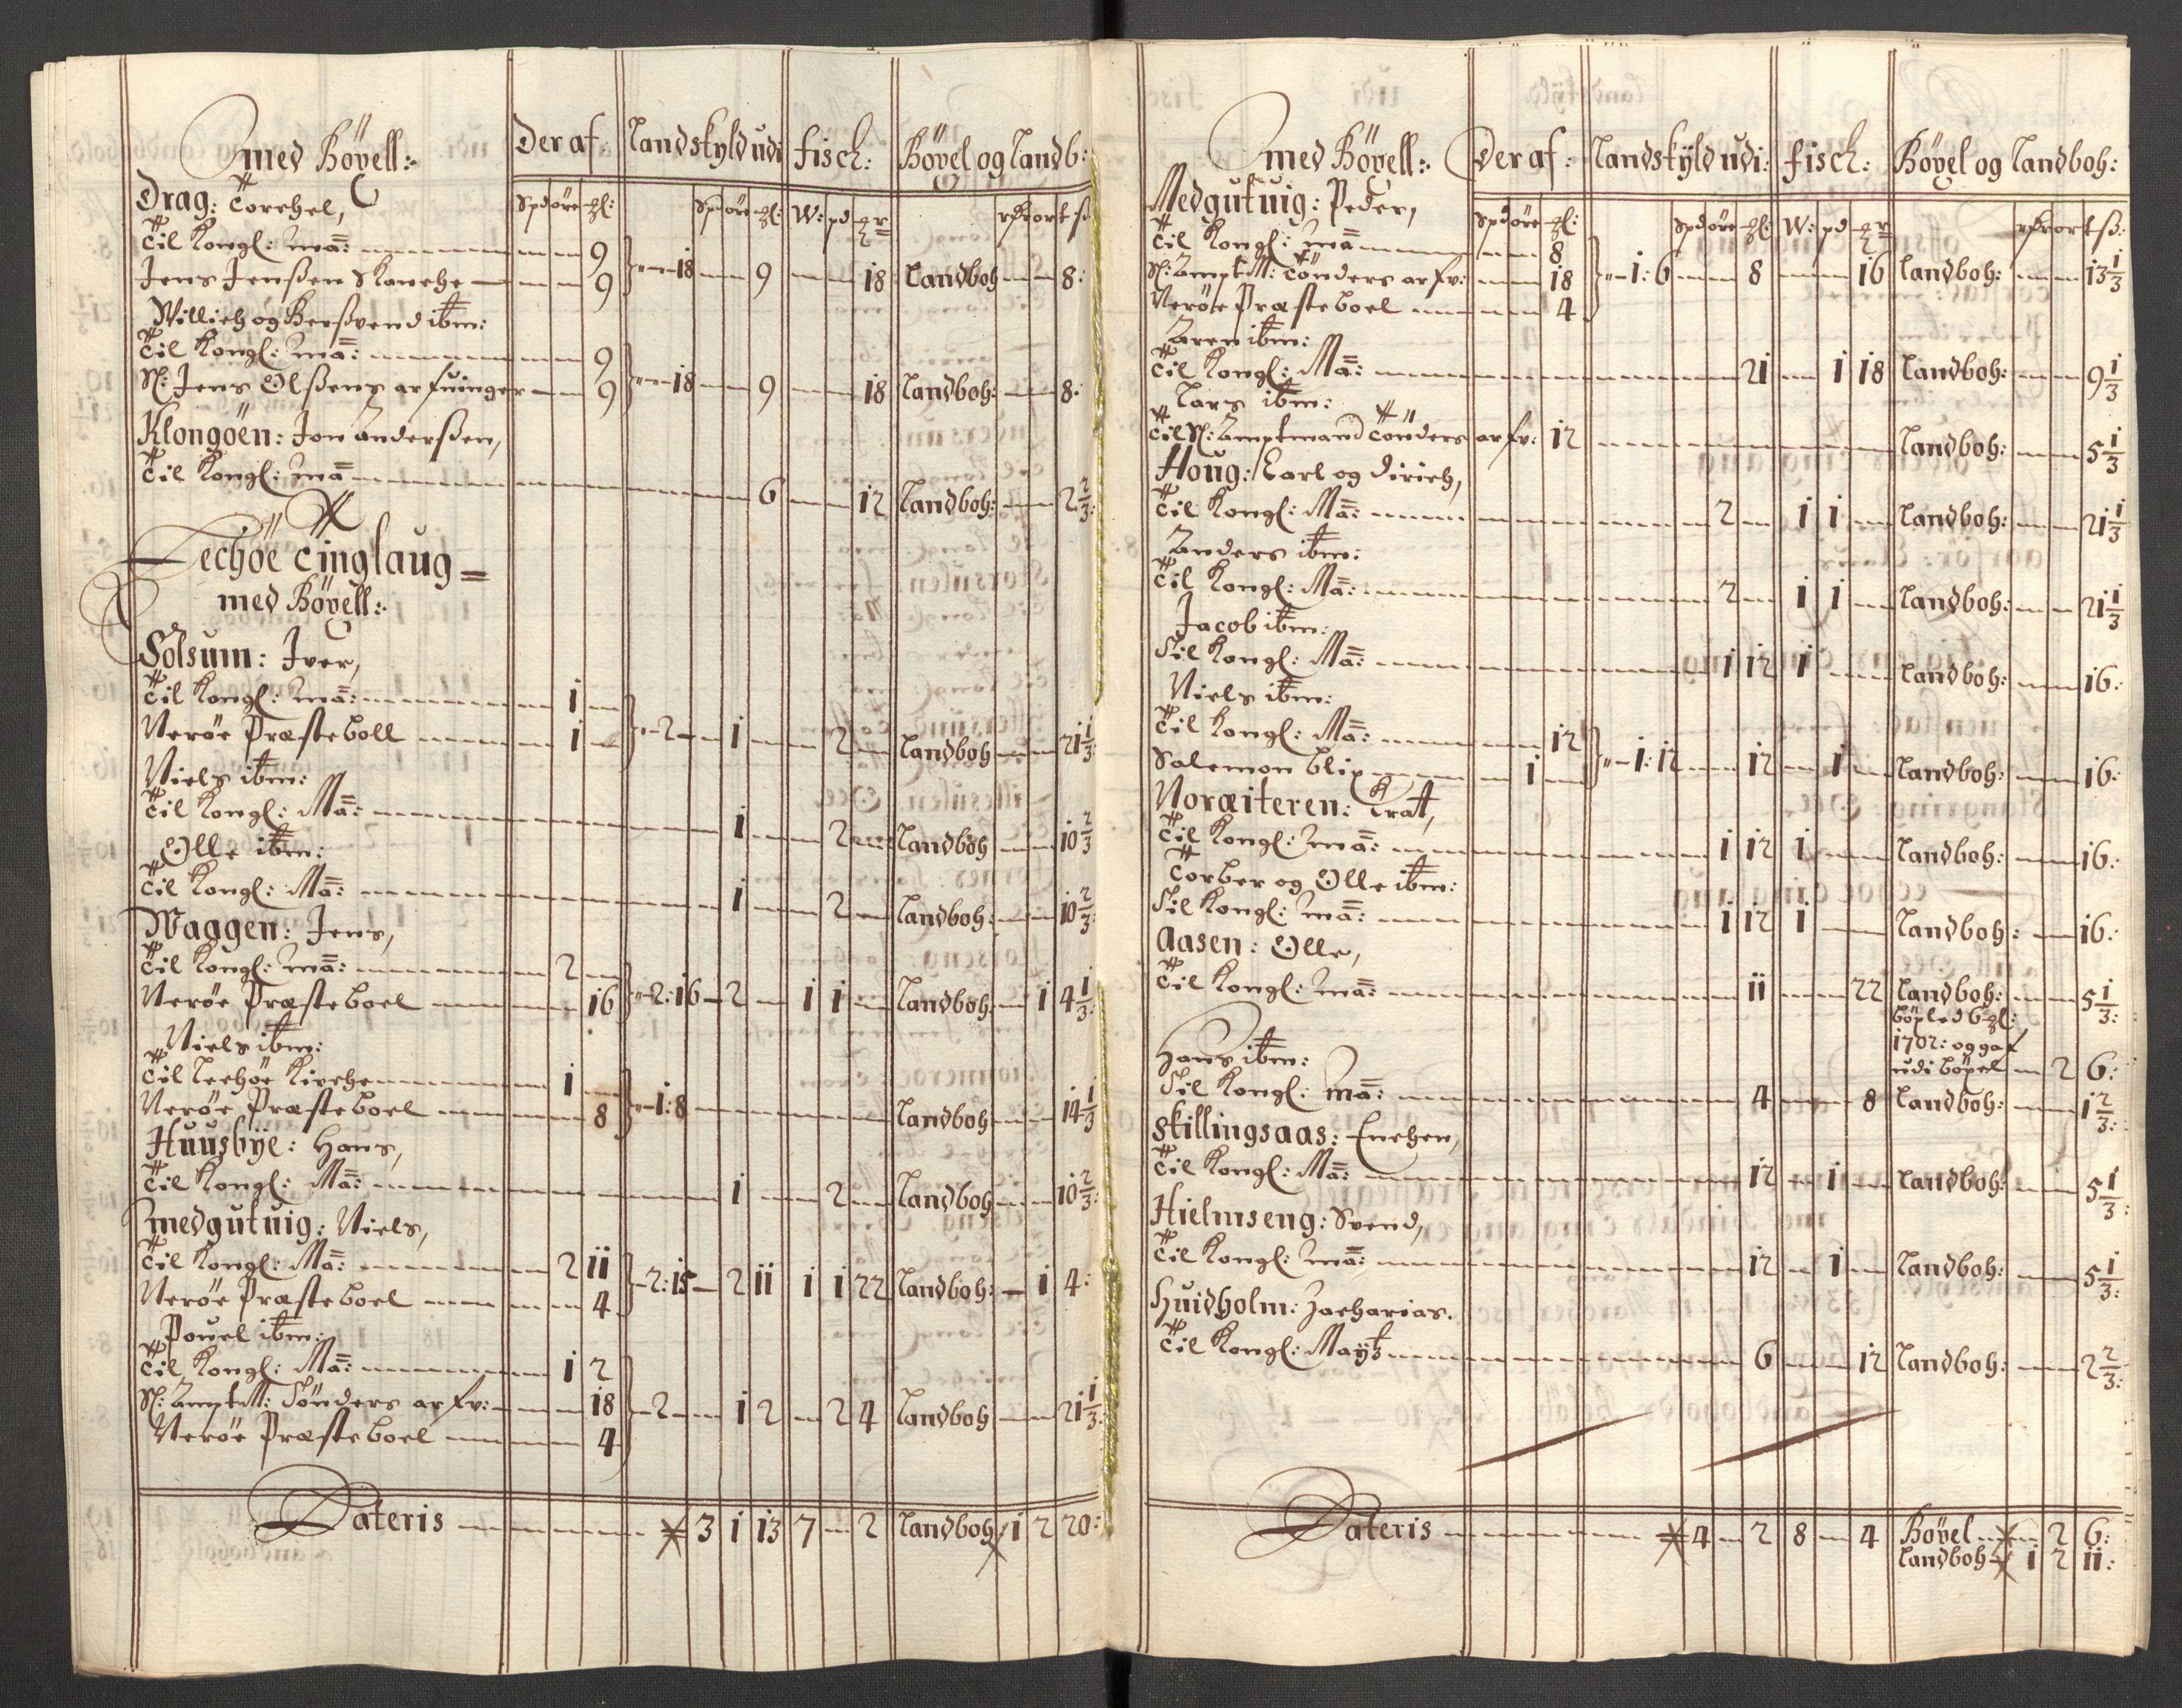 med Böxell:. Deraf: Landskyld udi fisch: Böxel og Landb:
Spd öre ql: Spd öre ql: W: pd qr rdr ort ß
Drag: Torchel,
Til Kongl: Mä: 9
Jens Jenßen Skanche 9 18 9 18 Landboh 8:
Willich og Berßvend ibm:
Til Kongl: Mä: 9
Sl: Jens Olßens arfuinger 9 18 9 18 Landboh: 8:
Klongöen: Jon Anderßen,
Til Kongl: Mä 6 12 Landboh: 2 2/3:
Lechöe Tinglaug
med Böxell:.
Solsum: Iver,
Til Kongl: Mä: 1
Neröe Præsteboll 1 2 1 2 Landboh 21 1/3:
Niels ibm:
Til Kongl: Mä: 1 2 Landboh 10 2/3
Olle ibm:
Til Kongl: Mä: 1 2 Landboh: 10 2/3:
Waagen: Jens,
Til Kongl: Mä: 2
Neröe Præsteboel 16 2: 16 2 1 1 Landboh: 1 4 1/3:
Niels ibm:
Til Lechöe Kirche 1
Neröe Præsteboel 8 1: 8 Landboh 14 1/3
Huusbÿe: Hans,
Til Kongl: Mä: 1 2 Landboh 10 2/3:
Medgutuig: Niels,
Til Kongl: Mä: 2 11
Neröe Præsteboel 4 2: 15 2 11 1 1 22 Landboh: 1 4:
Pouel ibm:
Til Kongl: Mä: 1 2
Sl: AmptM: Tönders arfv: 18 2 1 2 2 4 Landboh 21 1/3:
Neröe Præsteboel 4
Lateris 3 1 13 7 2 Landboh 1 2 20:
med Böxell:. Deraf: Landskÿld udi: fisch: Böxel og Landboh:
Spd öre ql: Spd öre ql: W: pd qr rdr ort ß:
Medgutuig: Peder,
Til Kongl: Mä 8
Sl: AmptM: Tönders arfv: 18 1: 6 8 16 Landboh: 13 1/3
Neröe Præsteboel 4
Aren ibm:
Til Kongl: Mä: 21 1 18 Landboh: 9 1/3
Lars ibm:
Til Sl: Amptmand Tönders arfv: 12 Landboh: 5 1/3
Houg: Carl og Dirich,
Til Kongl: Mä: 2 1 1 Landboh: 21 1/3
Anders ibm:
Til Kongl: Mä: 2 1 1 Landboh: 21 1/3
Jacob ibm:
Til Kongl: Mä: 1 12 1 Landboh: 16:
Niels ibm:
Til Kongl: Mä: 12
Salemon Blix 1 1: 12 12 1 Landboh: 16:
Noraiteren: Trat,
Til Kongl: Mä: 1 12 1 Landboh: 16:
Torber og Olle ibm:
Til Kongl: Mä: 1 12 1 Landboh: 16:
Aasen: Olle,
Til Kongl: Mä: 11 22 Landboh: 5 1/3:
böxled 6 ql:
1702: og gaf
udi böxel 2 6:
Hans ibm:
Til Kongl: Mä: 4 8 Landboh: 1 2/3:
Skillingsaas: Enchen,
Til Kongl: Mä: 12 1 Landboh: 5 1/3:
Hielmseng: Svend,
Til Kongl: Mä: 12 1 Landboh: 5 1/3:
Huidholm: Zacharias.
Til Kongl: Maytz 6 12 Landboh: 2 2/3:
Lateris 4 2 8 4 Böxel 2 6:
Landboh 1 2 11: